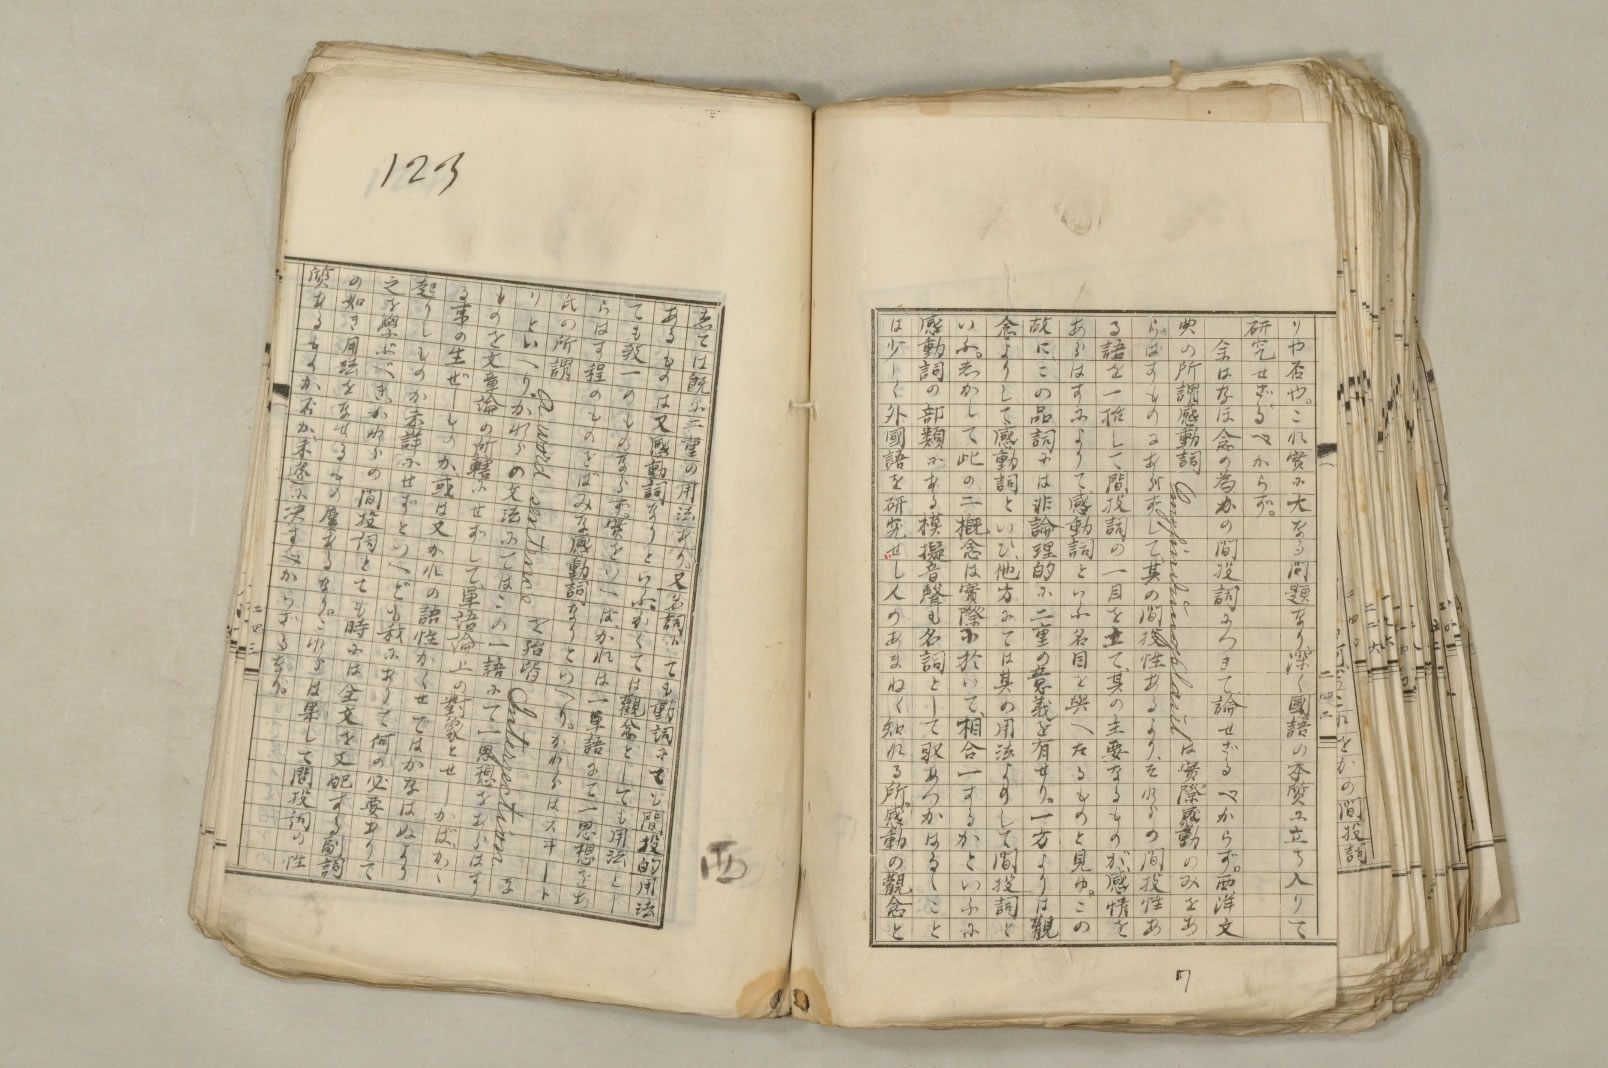 りや否や。これ實に大なる問題なり深く國語の本質に立ち入りて
研究せざるべからず。
余はなほ念の為かの間投詞につきて論せざるべからず。西洋文
典の所謂感動詞 Empfindungslaut は實際感動のみをあ
らはすものにあらずして其の間投性あるよりそれらの間投性あ
る語を一括して間投詞の一目を立て、其の主要なるものが感情を
あらはすによりて感動詞といふ名目を與へたるものと見ゆ。この
故に、この品詞には非論理的に二重の意義を有せり。一方よりは觀
念よりして感動詞といひ、他方にては其の用法よりして間投詞と
いふ。しかして此の二概念は實際に於いて、相合一するかといふに
感動詞の部類にある模擬音聲も名詞として取あつかはるゝこと
は少しく外國語を研究せし人のあまねく知れる所感動の觀念と
しては既に二重の用法あり。又名詞にても動詞にても間投的用法
あるものは又感動詞なりといふ。かくては觀念としても用法とし
ても教一のものならず。實をいへばかれは一單語にて一思想をあ
らはす程のものをばみな感動詞なりといへり。かれらはスヰート
氏の所謂 a word sentence を孫皆 Interjection な
りといへりかれらの文法にてはこの一語にて一思想をあらはす
ものを文章論の所轄にせずして單語論上の對象とせしかばかく
る事の生ぜしものか或は又かれの語性かくせではかなはぬより
起りしものか未詳にせずといへども我にありて何の必要ありて
之を學ぶべき、かれらの間投詞とても時には全文を支配する副詞
の如き用法をなせるもの屢あるなり。これらは果して間投詞の性
質あるものか否か未遽に決すべからざるなり。
123
西
7
二四二
二四三